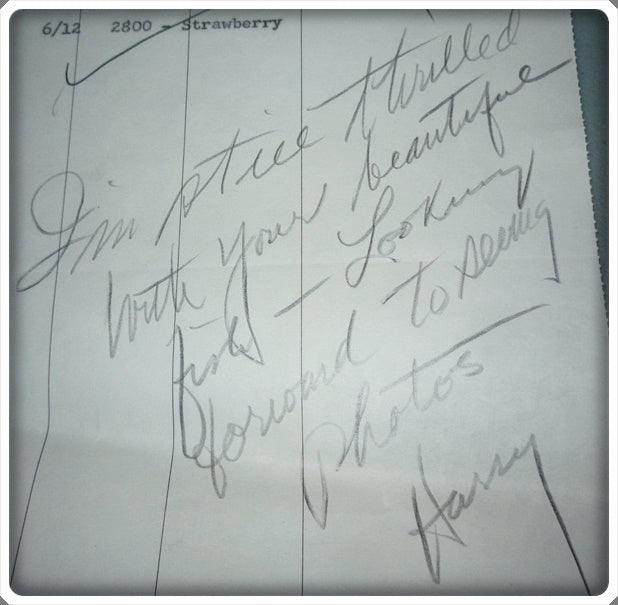 6/12 2800 - Strawberry
I'm still thrilled
with your beautiful
fish - Looking
forward to seeing
Photos
Harry